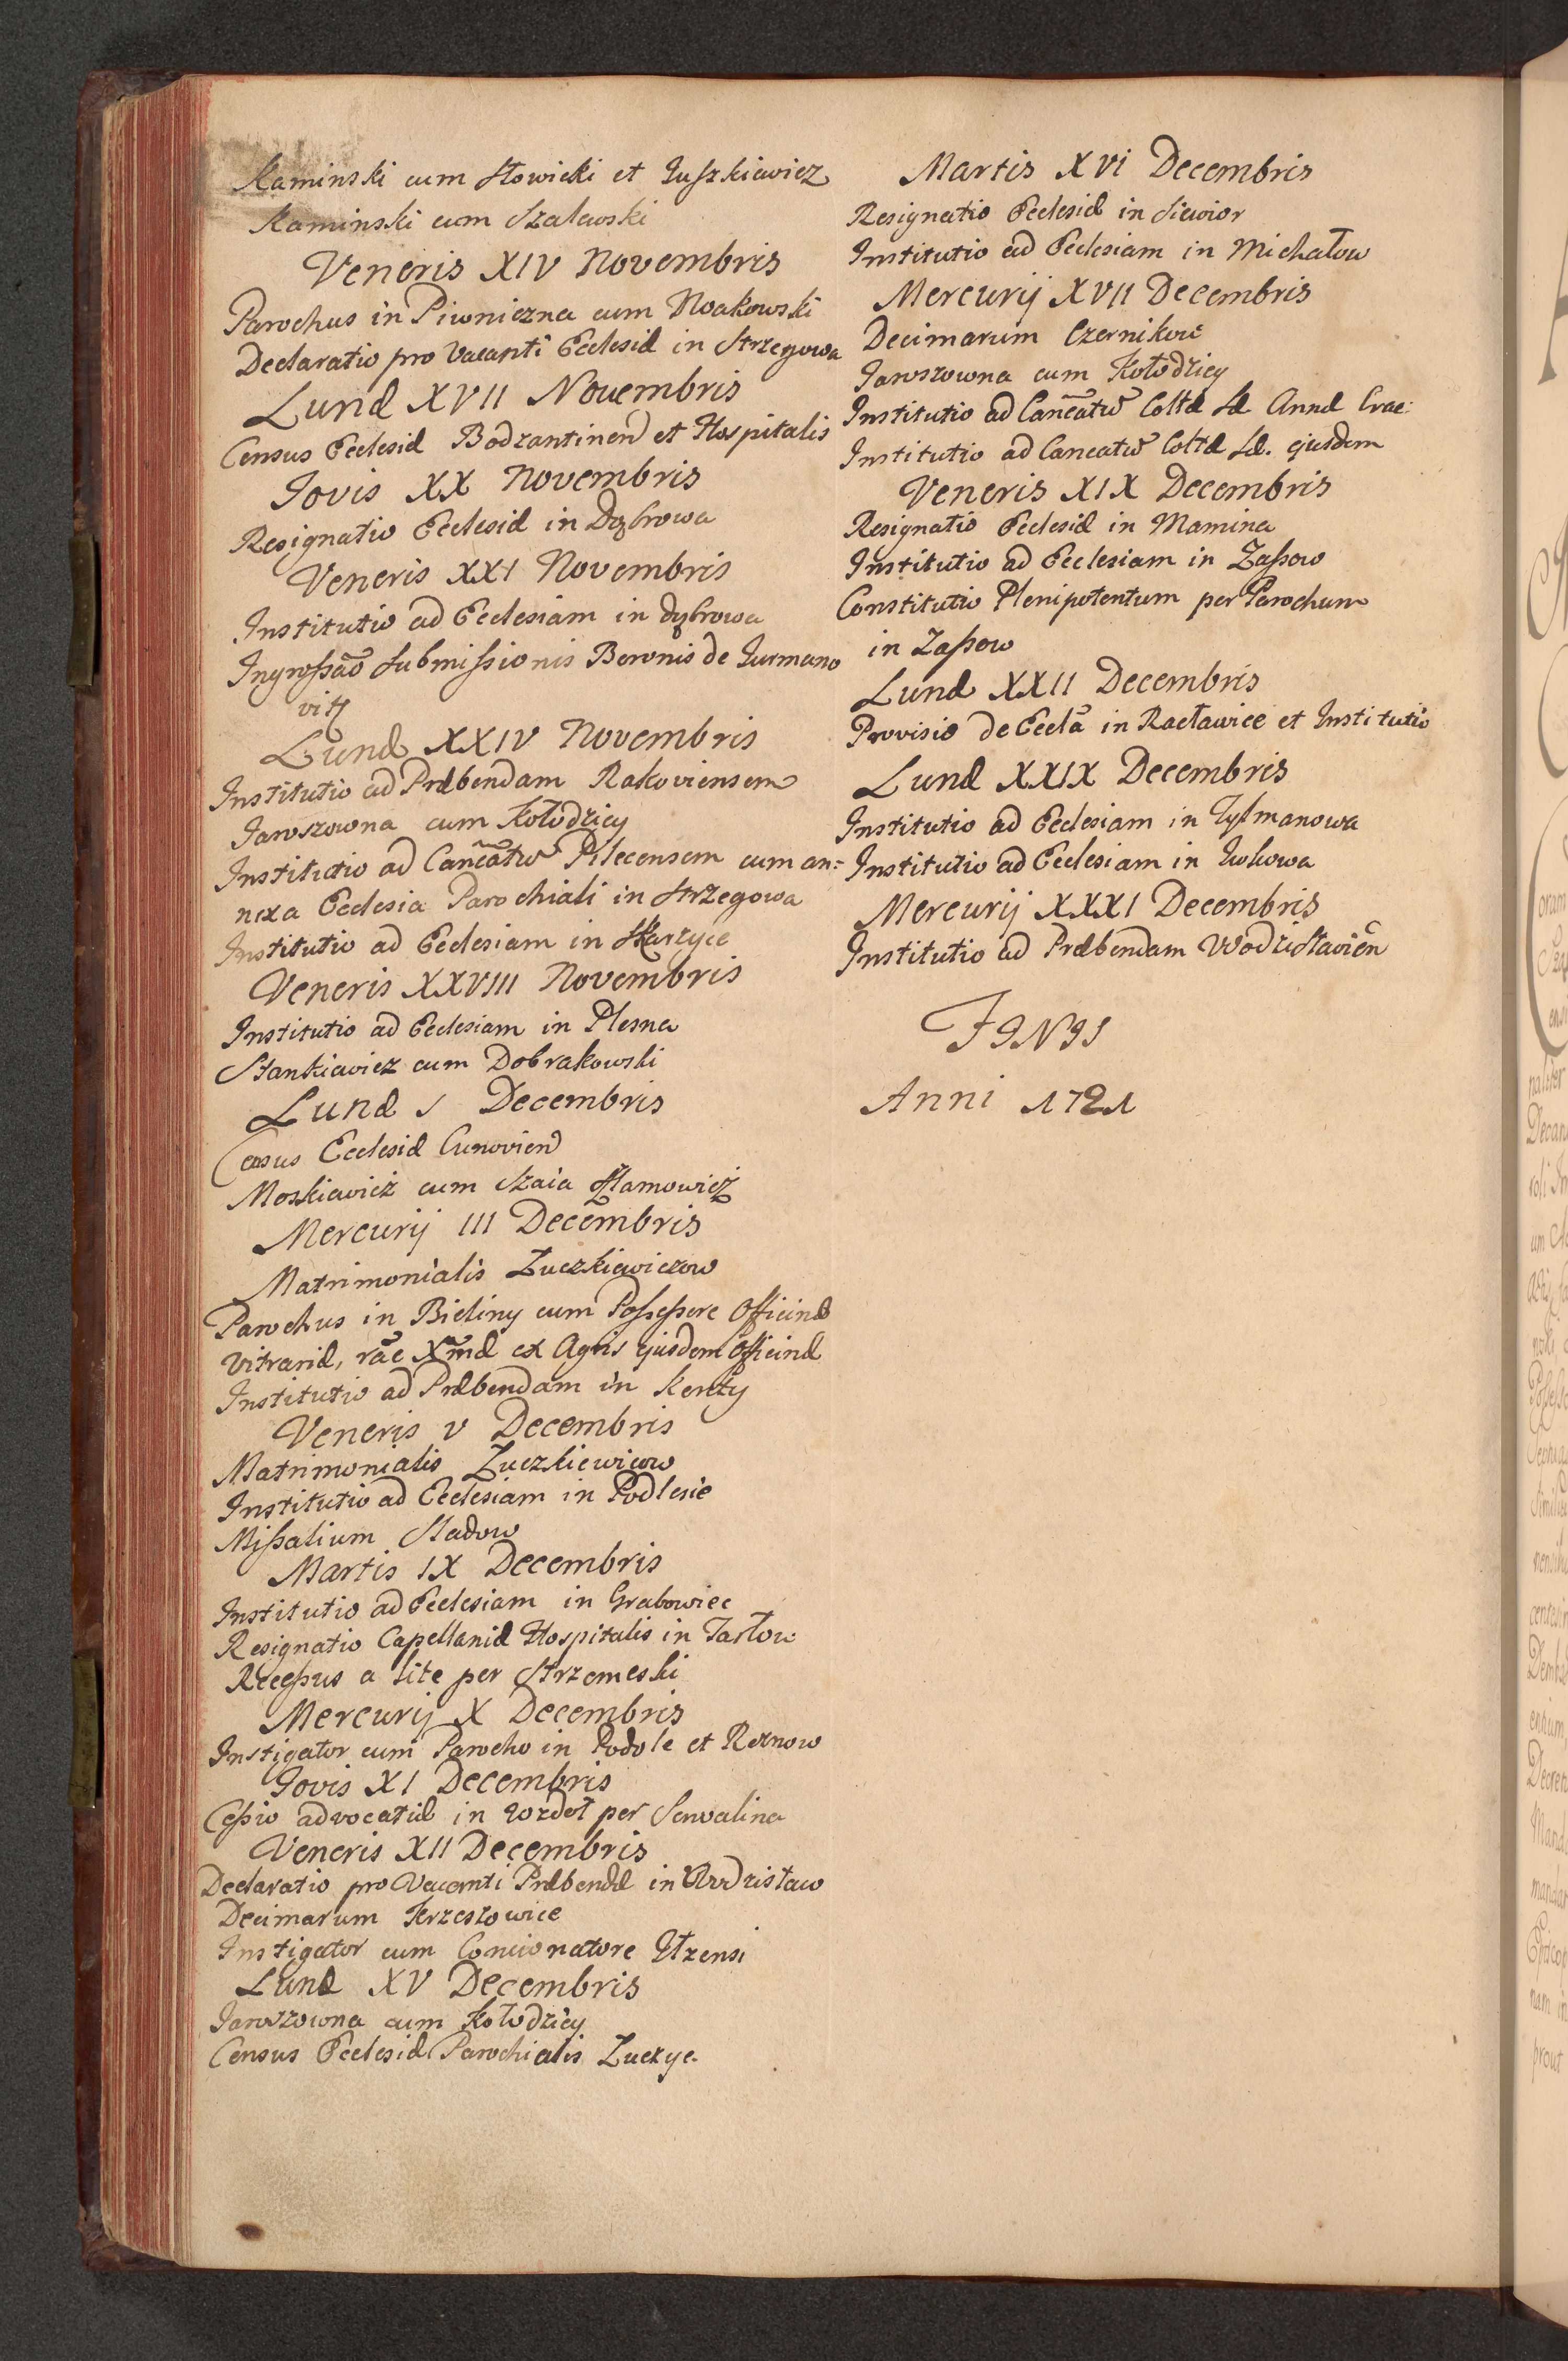 Kaminski cum Słowicki et Juszkiewicz
Kaminski cum Szalewski
Veneris XIV Novembris
Parochus in Piwniczna cum Noakowski
Declaratio pro Vacanti Ecclesiæ in Strzegowa
Lunæ XVII Novembris
Census Ecclesiæ Bodzantinen et Hospitalis
Jovis XX Novembris
Resignatio Ecclesiæ in Dąbrowa
Veneris XXI Novembris
Institutio ad Ecclesiam in Dąbrowa
Ingroſsaõ Submiſsionis Baronis de Jurmano
vitz
Lunæ XXIV Novembris
Institutio ad Præbendam Rakoviensem
Jaroszowna cum Kołodzicy
Institutio ad Canẽatũ Pilecensem cum an=
nexa Ecclesia Parochiali in Strzegowa
Institutio ad Ecclesiam in Skarzyce
Veneris XXVIII Novembris
Institutio ad Ecclesiam in Plesna
Stankiewicz cum Dobrakowski
Lunæ I Decembris
Casus Ecclesiæ Cunovien
Moskiewicz cum Szaia
Mercurij III Decembris
Matrimonialis Łuczkiewiczow
Parochus in Bieliny cum Poſseſsore Officinæ
Vitrariæ, rãe Xmæ ex Agris ejusdem Officinæ
Institutio ad Præbendam in Kenty
Veneris V Decembris
Matrimonialis Łuczkiewiczow
Institutio ad Ecclesiam in Podlesie
Miſsalium Sładow
Martis IX Decembris
Institutio ad Ecclesiam in Grabowiec
Resignatio Capellaniæ Hospitalis in Tarłow
Receſsus a lite per Strzemeski
Mercurij X Decembris
Instigator cum Parocho in Podole et Roznow
Jovis XI Decembris
Ceſsio advocatiæ in per
Veneris XII Decembris
Declaratio pro Vacanti Præbendæ in Wodzisław
Decimarum Krzeszowice
Instigator cum Concionatore Iłzensi
Lunæ XV Decembris
Jaroszowna cum Kołodzicy
Census Ecclesiæ Parochialis Łuczyc
Martis XVI Decembris
Resignatio Ecclesiæ in Siewior
Institutio ad Ecclesiam in Michałow
Mercurij XVII Decembris
Decimarum Czernikow
Jaroszowna cum Kołodzicy
Institutio ad Canẽatũ Coltæ Sæ Annæ Crac:
Institutio ad Caneatũ Coltæ Sæ. ejusdem
Veneris XIX Decembris
Resignatio Ecclesiæ in Mamina
Institutio ad Ecclesiam in Zaſsow
Constitutio Plenipotentum per Parochum
in Zaſsow
Lunæ XXII Decembris
Provisio de Eccla in Racławice et Institutio
Lunæ XXIX Decembris
Institutio ad Ecclesiam in Tylmanowa
Institutio ad Ecclesiam in Iwkowa
Mercurij XXXI Decembris
Institutio ad Præbendam Wodzisławieñ
FINIS
Anni 1721